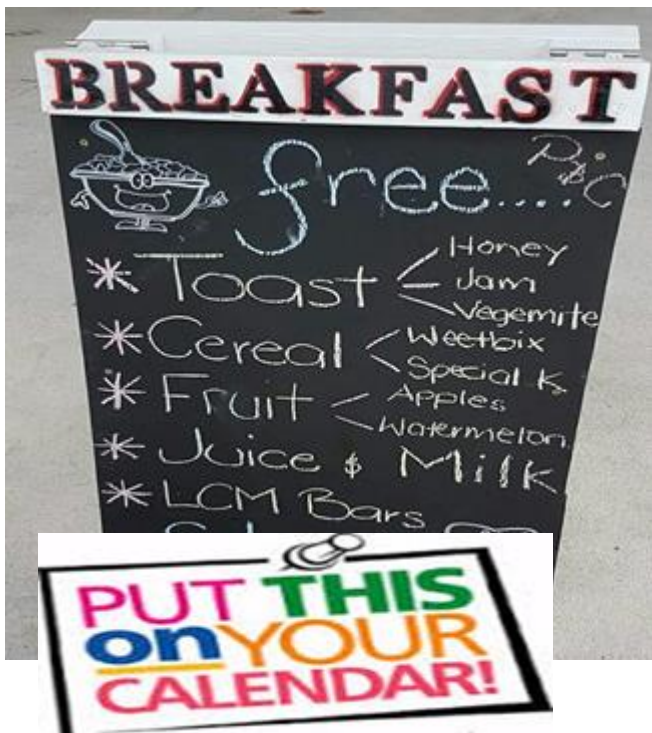 BREAKFAST
free....
P&C
* Toast
Honey
Jam
Vegemite
* Cereal
Weetbix
Special K
* Fruit
Apples
Watermelon
* Juice & Milk
* LCM Bars
PUT THIS
on YOUR
CALENDAR!